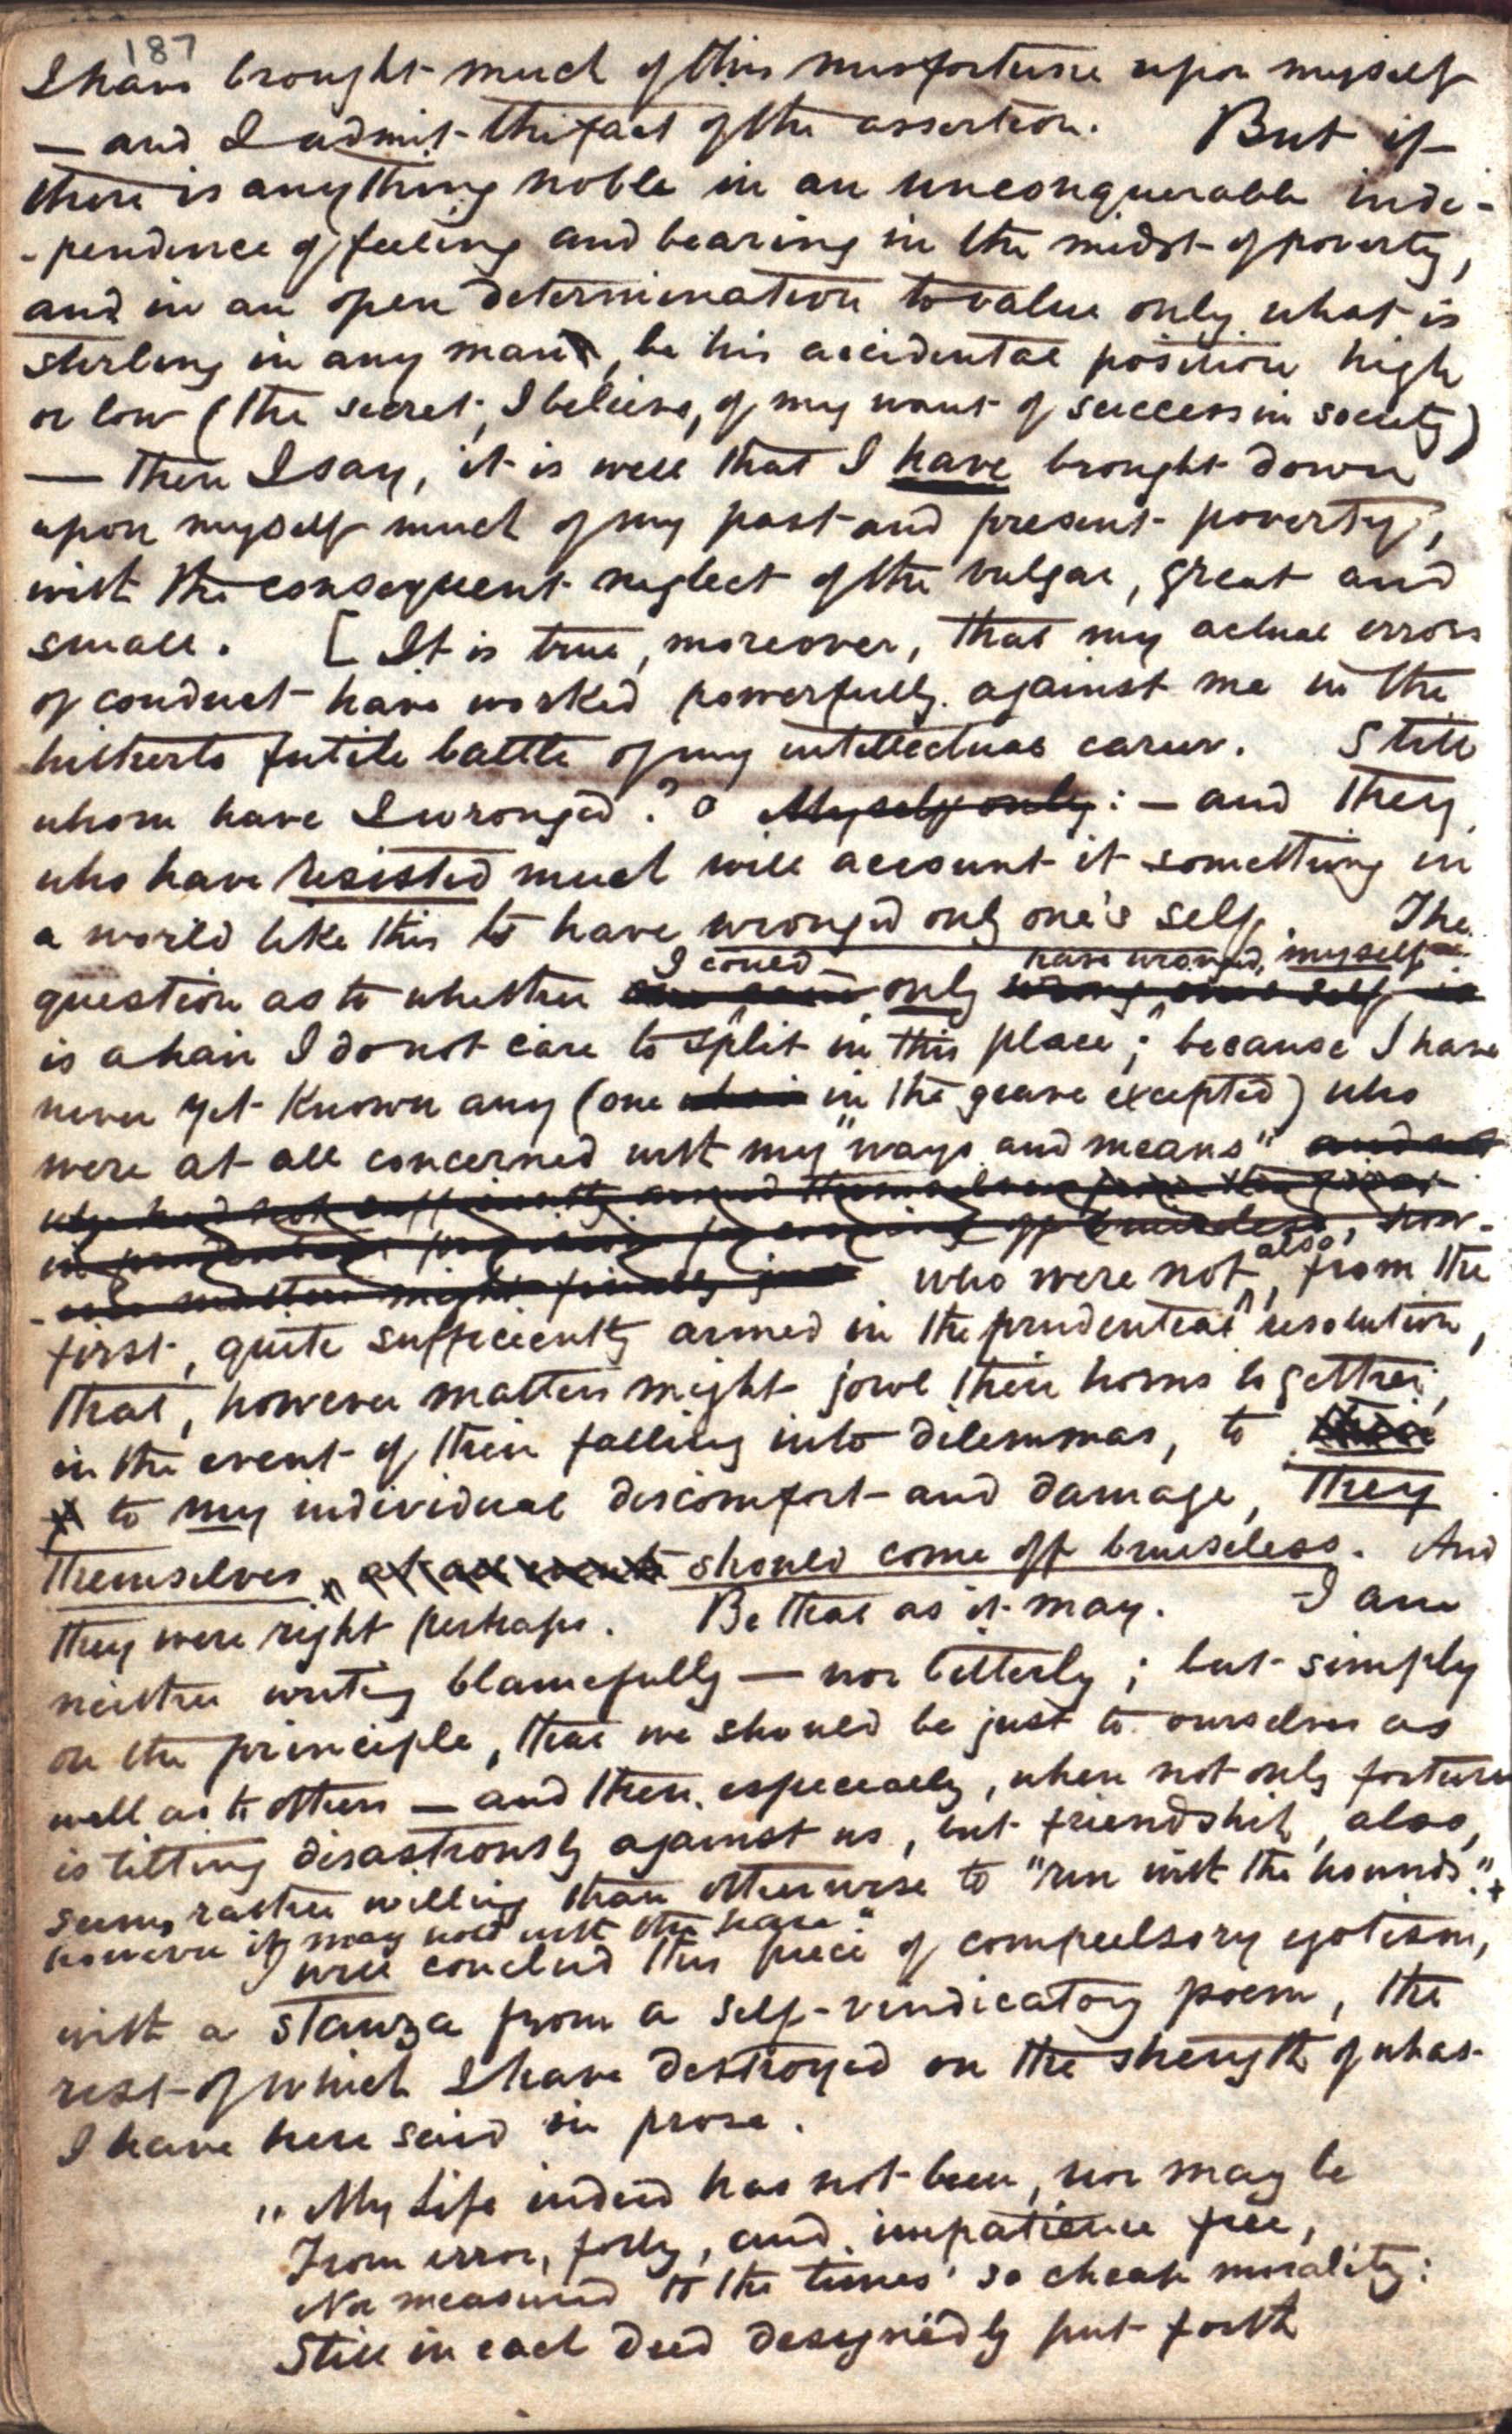 187
I have brought much of this misfortune upon myself
— and I admit the fact of the assertion. But if
there is anything noble in an unconquerable inde-
-pendence of feeling and bearing in the midst of poverty,
and in an open determination to value only what is
sterling in any man, be his accidental position high
or low (the secret, I believe, of my want of success in society)
— then I say, it is well that I have brought down
upon myself much of my past and present poverty,
with the consequent neglect of the vulgar, great and
small. [It is true, moreover, that my actual errors
of conduct have worked powerfully against me in the
hitherto futile battle of my intellectual career. Still
whom have I wronged? Myself only: — and they
who have resisted much will account it something in
a world like this to have wronged only one's self. The
I could have wronged myself
question as to whether only wrong one's self is
is a hair I do not care to split in this place; because I have
never yet known any (one in the grave excepted) who
were at all concerned with my "ways and means" and
who had not sufficiently armed themselves from the first
in prudential for coming off bruiseless, how-
-ever matters might finally who were not also, from the
first, quite sufficiently armed in the prudential resolution,
that, however matters might jowl their horns together,
in the event of their falling into dilemmas, to
to my individual discomfort and damage, they
themselves, at all events should come off bruiseless. And
they were right perhaps. Be that as it may. I am
neither writing blamefully — nor bitterly; but simply
on the principle, that we should be just to ourselves as
well as to others — and then especially, when not only fortune
is tilting disastrously against us, but friendship, also,
seems rather willing than otherwise to "run with the hounds"
however it may hold with the hare."
I will conclude this piece of compulsory egotism,
with a stanza from a self-vindicatory poem, the
rest of which I have destroyed on the strength of what
I have here said in prose.
"My Life indeed has not been, nor may be
From error, folly, and impatience free,
Nor measured to the times' so cheap morality:
Still in each deed designedly put forth